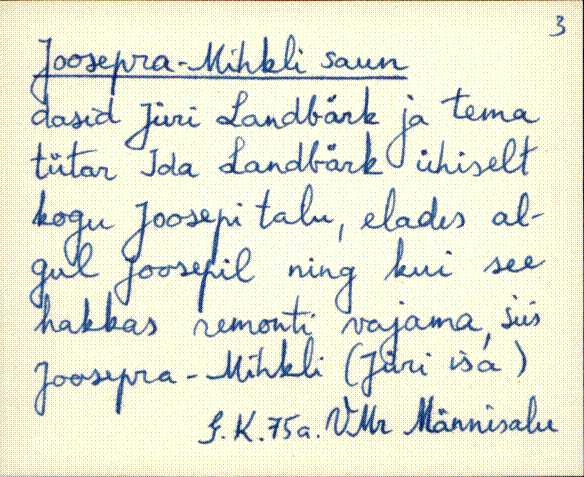 3
Joosepra-Mihkli saun
dasid Jüri Landbärk ja tema
tütar Ida Landbärk ühiselt
kogu Joosepi talu, elades al-
gul Joosepil ning kui see
hakkas remonti vajama, siis
Joosepra-Mihkli (Jüri isa)
J.K. 75a. VMr Männisalu